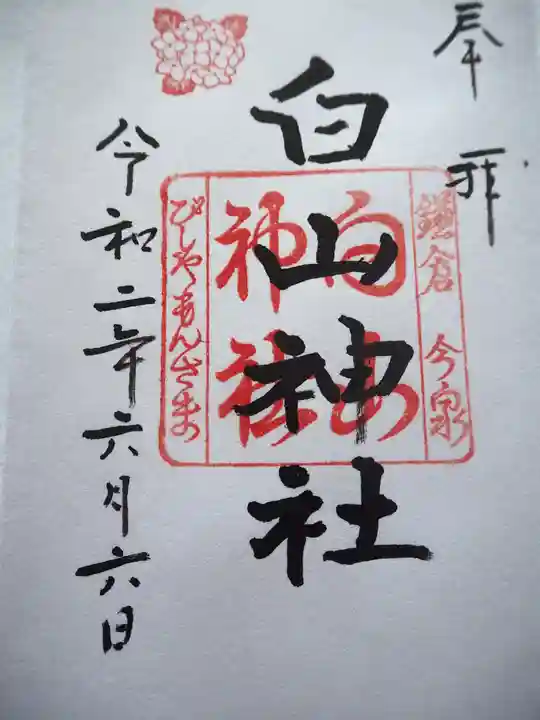 奉拝
鎌倉 今泉
白山神社
白山
神社
びしゃもんさま
令和二年六月六日